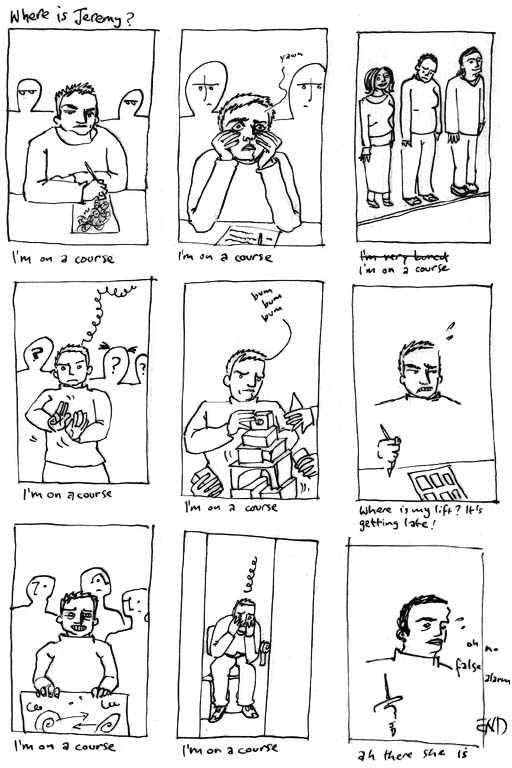 Where is Jeremy?
yawn
I'm on a course
I'm on a course
I'm very bored
I'm on a course
?
?
?
bum
bum
bum
I'm on a course
I'm on a course
Where is my lift? It's
getting late!
I'm on a course
I'm on a course
oh no
false
alarm
END
ah there she is